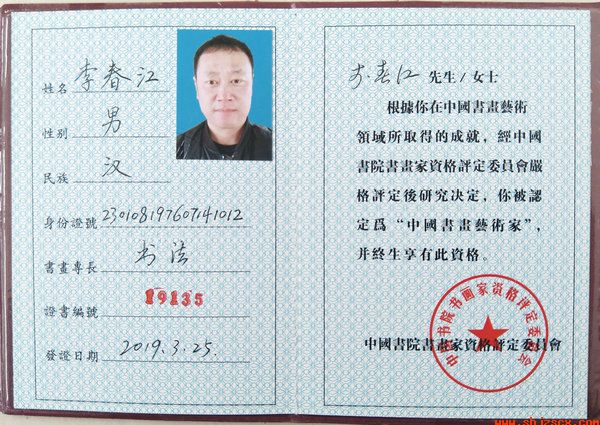 姓名 李春江
性别 男
民族 汉
身份證號 230108197607141012
書畫專長 书法
證書編號 19135
發證日期 2019.3.25.
李春江 先生/女士
根據你在中國書畫藝術
領域所取得的成就，經中國
書院書畫家資格評定委員會嚴
格評定後研究决定，你被認
定爲“中國書畫藝術家”，
并終生享有此資格。
中國書院書畫家資格評定委員會
中国书院书画家资格评定委员会
www.shjzscx.com